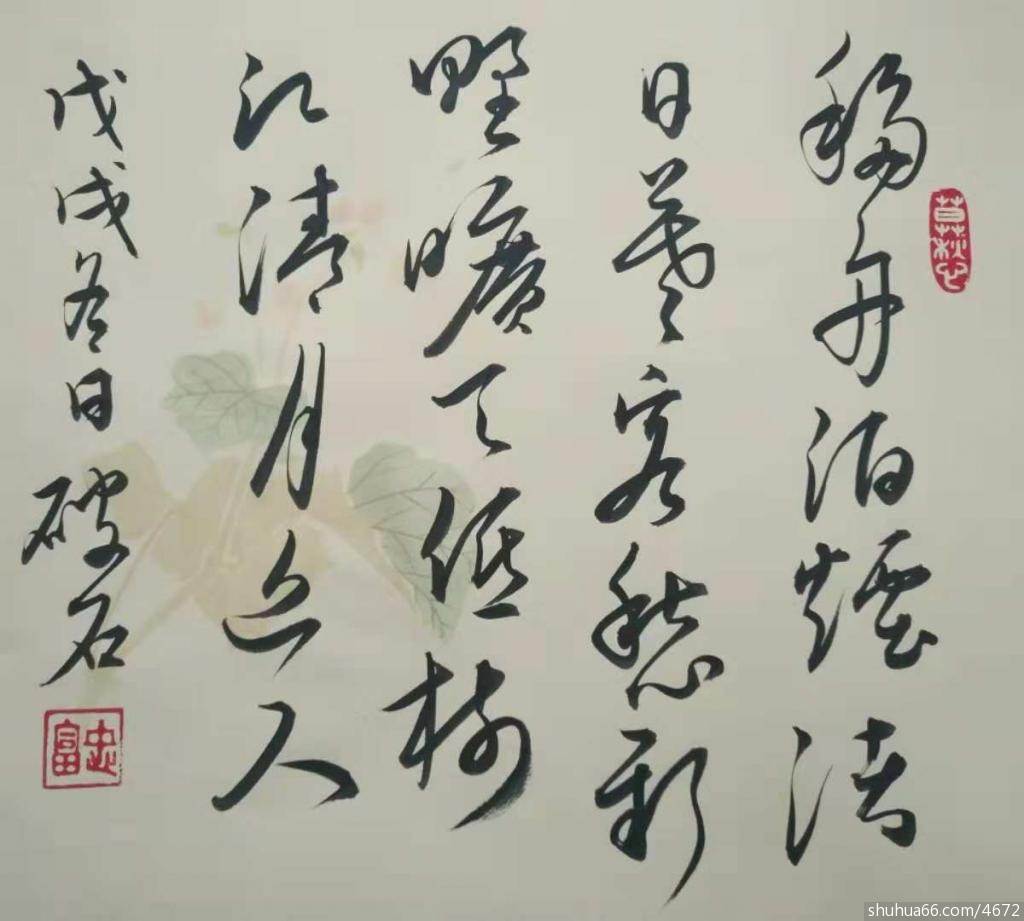 移舟泊煙渚
日暮客愁新
野曠天低樹
江清月近人
戊戌冬日破石
忠富
shuhua66.com/4672